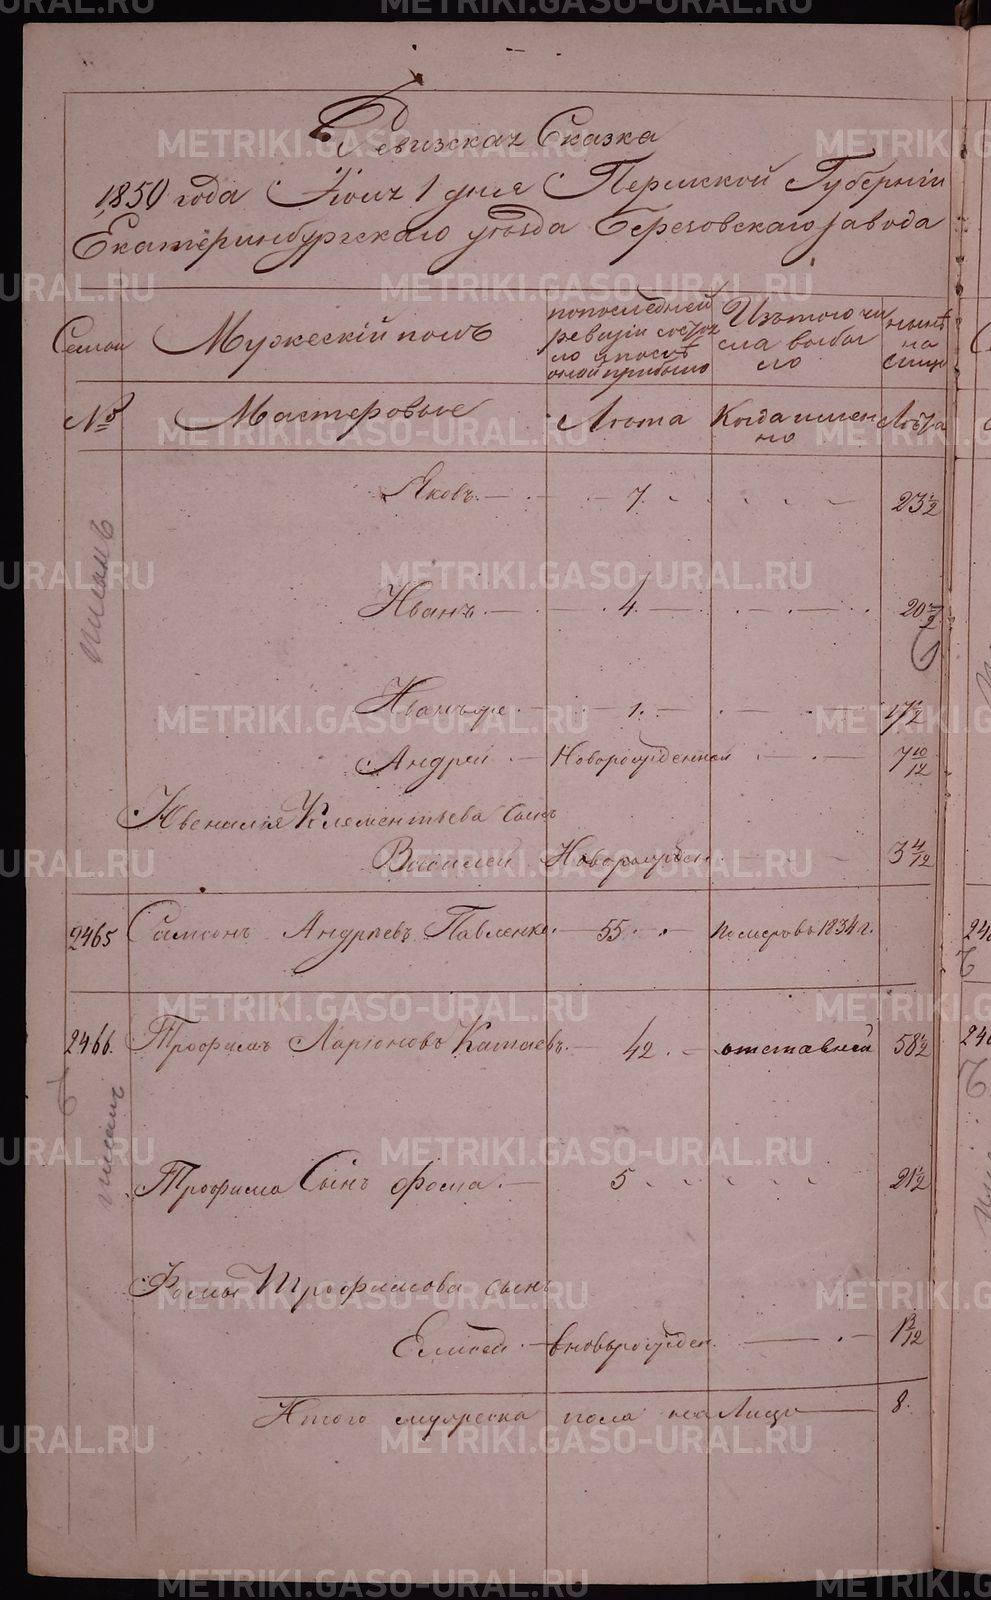 Ревизская Сказка
1850 года Июля 1 дня Пермской Губернiи
Екатеринбургскаго уезда Березовскаго завода
Семьи
Мужескiй полъ
по последней ревизiи состояло и после оной прибыло
Изъ того числа выбыло
ныне на лицо
№
Мастеровые
Лета
Когда именно
Лета
Яковъ 7 23 1/2
Иванъ 4 20 1/2
Иванъ же 1 17 1/2
Андрей Новорожденной 7 10/12
Ювеналiя Клементьева сынъ
Василей Новорожден 3 4/12
2465 Самсонъ Андреевъ Павленко 55 померъ въ 1834 г.
2466. Трофимъ Ларiоновъ Катаевъ 42 отставной 58 1/2
Трофима Сынъ Фома 5 21 1/2
Фомы Трофимова сынъ
Елисей вновьрожден. 1 2/12
Итого мужеска пола на Лицо 8.
METRIKI.GASO-URAL.RU